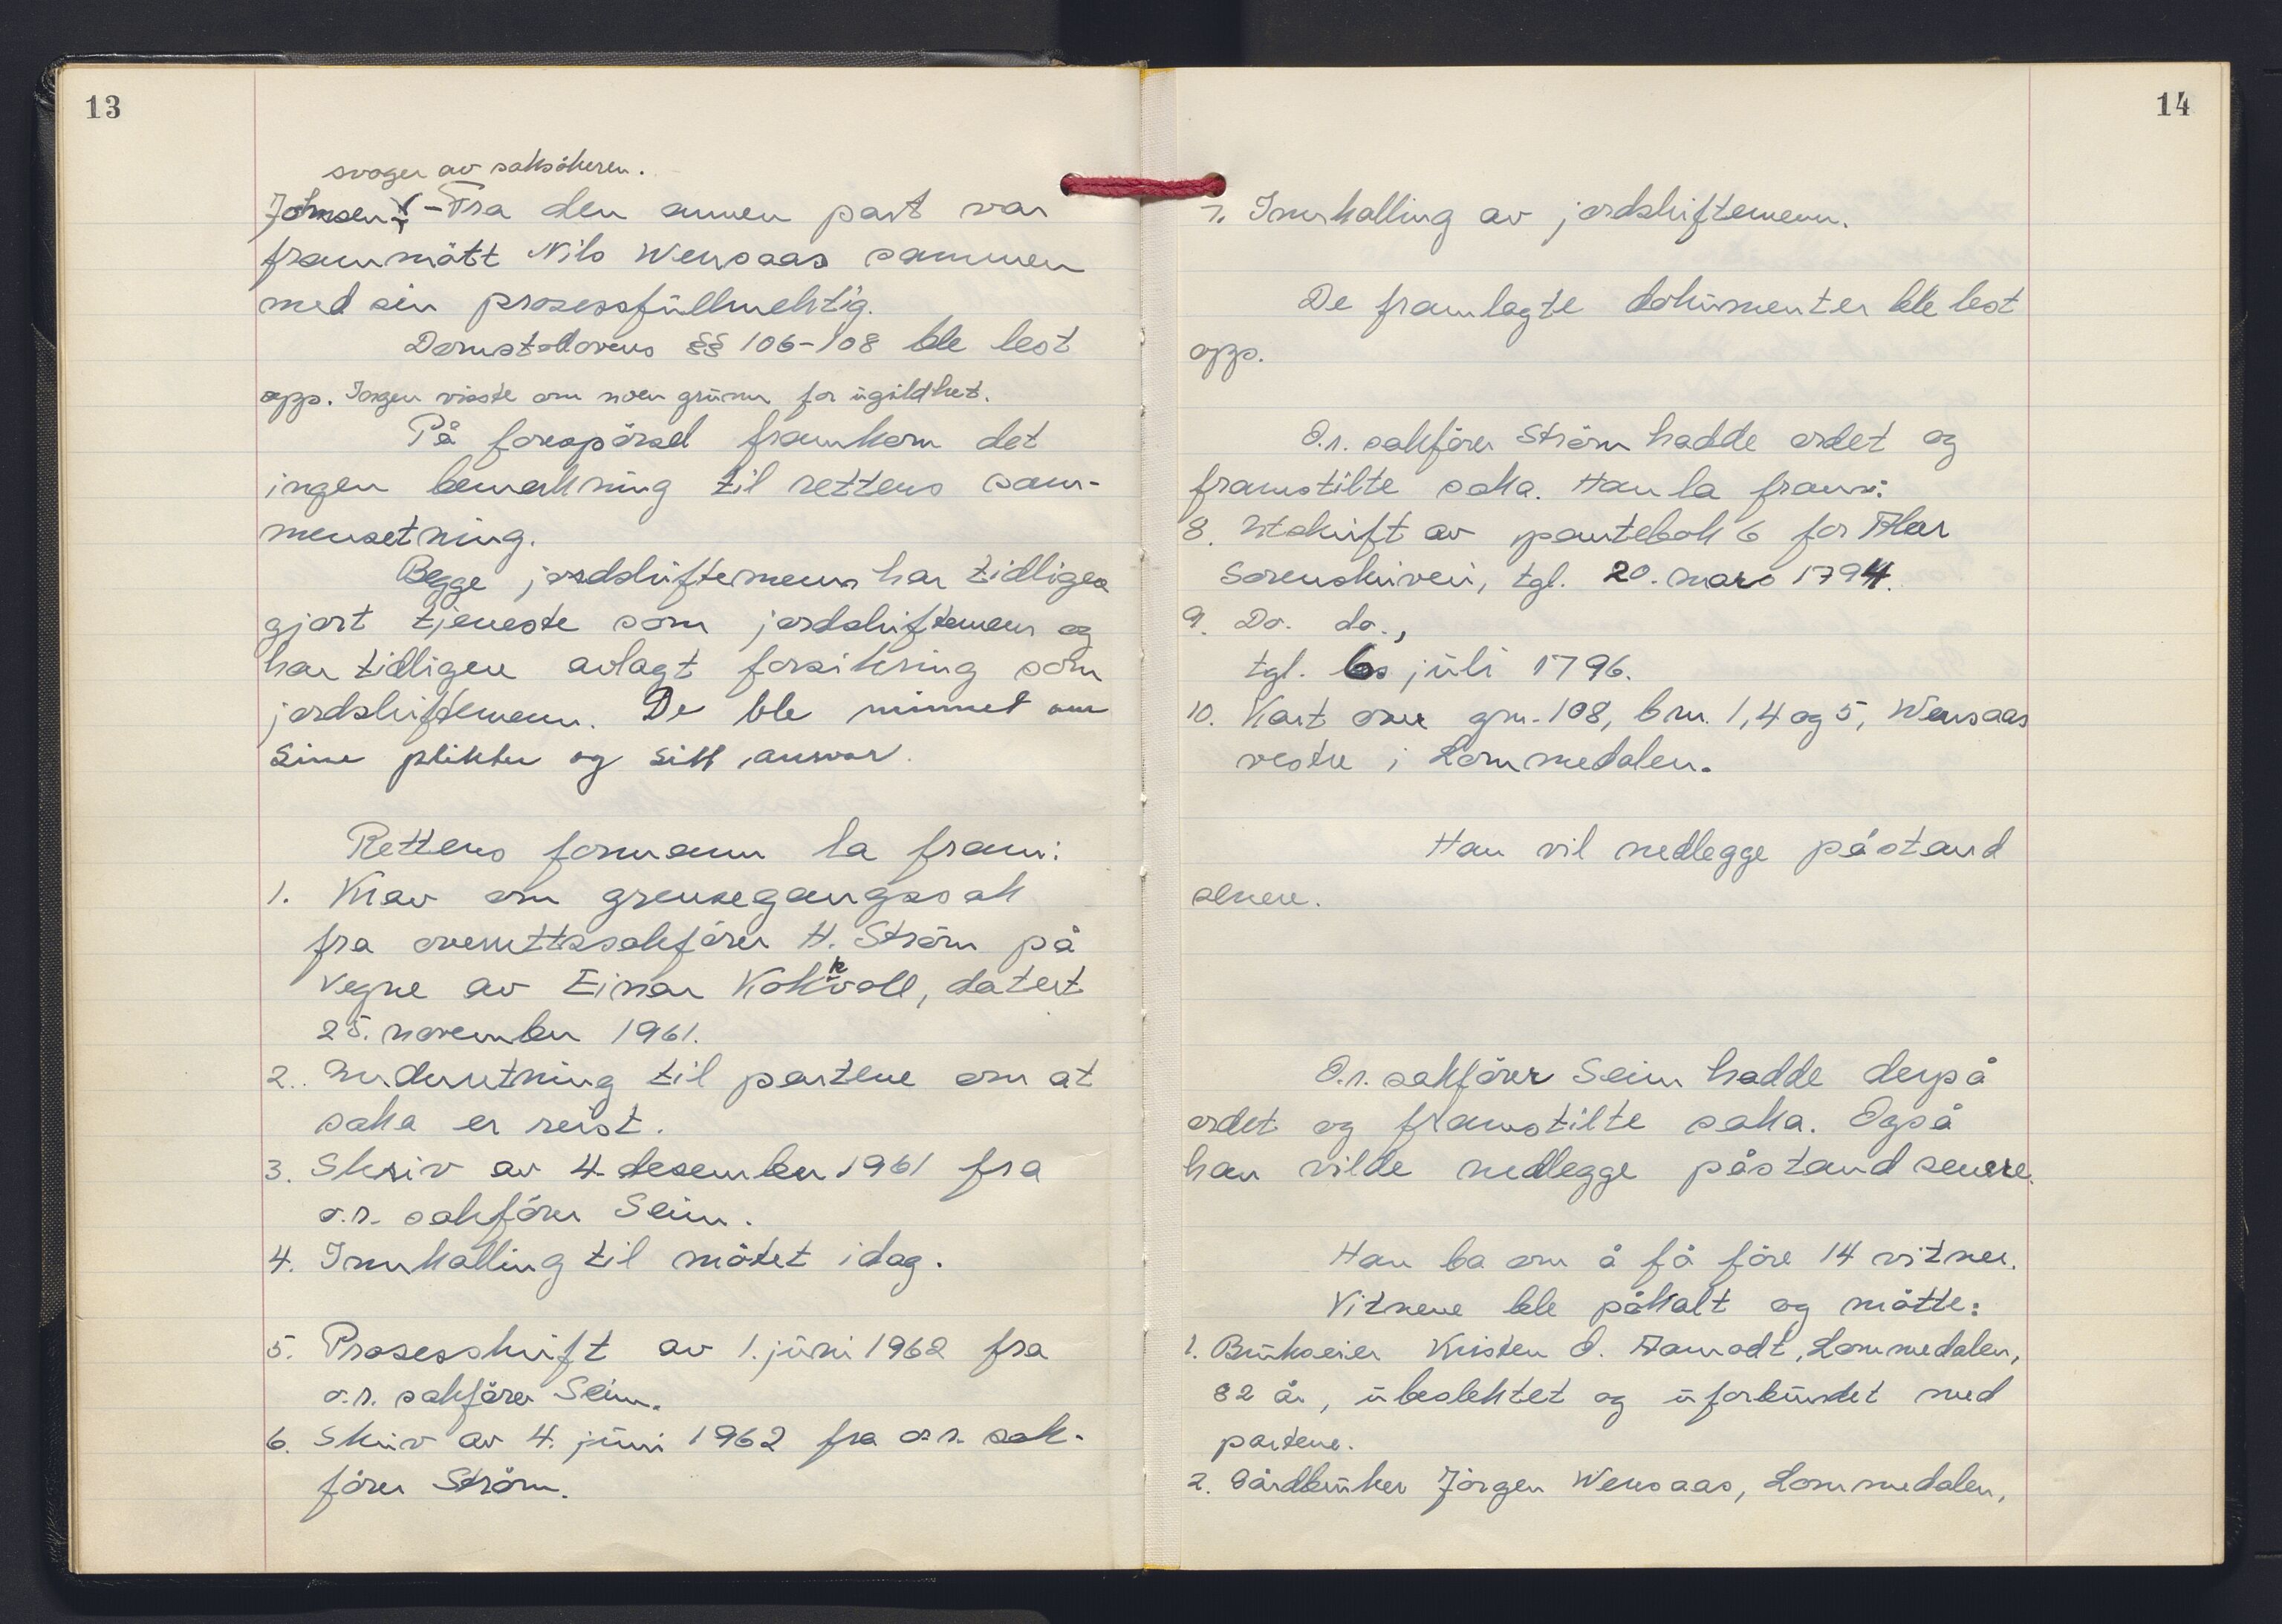 13
svoger av saksökeren.
Johnsen. – Fra den annen part var
frammött Nils Wensaas sammen
med sin prosessfullmektig.
Domstollovens §§ 106-108 ble lest
opp. Ingen visste om noen grunn for ugildhet.
På forespörsel framkom det
ingen bemerkning til rettens sam-
mensetning.
Begge jordskiftemenn har tidligere
gjort tjeneste som jordskiftemenn og
har tidligere avlagt forsikring som
jordskiftemenn. De ble minnet om
sine plikter og sitt ansvar.
Rettens formann la fram:
1. Krav om grensegangssak
fra overrettssakförer H. Ström på
vegne av Einar Kokkvoll, datert
25. november 1961.
2. Underretning til partene om at
saka er reist.
3. Skriv av 4. desember 1961 fra
o.r. sakförer Seim.
4. Innkalling til mötet idag.
5. Prosesskrift av 1. juni 1962 fra
o.r. sakförer Seim.
6. Skriv av 4. juni 1962 fra o.r. sak-
förer Ström.
14
7. Innkalling av jordskiftemenn.
De framlagte dokumenter ble lest
opp.
O.r. sakförer Ström hadde ordet og
framstilte saka. Han la fram:
8. Utskrift av pantebok 6 for Aker
Sorenskriveri, tgl. 20. mars 1794.
9. Do. do.,
tgl. 6. juli 1796.
10. Kart over gnr. 108, bnr. 1, 4 og 5, Wensaas
vestre i Lommedalen.
Han vil nedlegge påstand
senere.
O.r. sakförer Seim hadde derpå
ordet og framstilte saka. Også
han vilde nedlegge påstand senere.
Han ba om å få före 14 vitner.
Vitnene ble påkalt og mötte:
1. Brukseier Kristen O. Aamodt, Lommedalen,
82 år, ubeslektet og uforbundet med
partene.
2. Gårdbruker Jörgen Wensaas, Lommedalen,